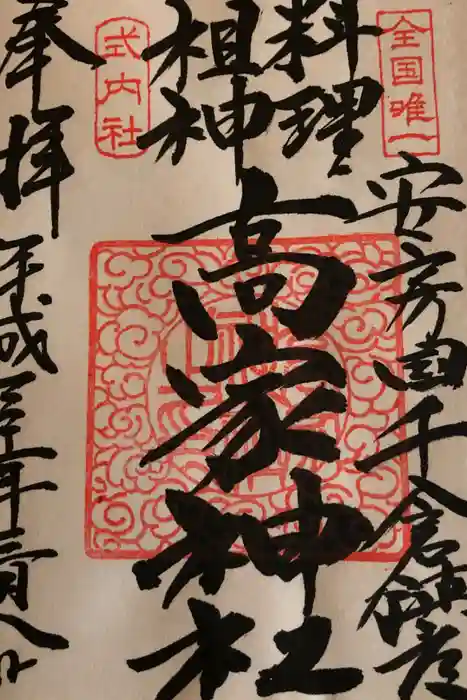 全国唯一
安房国千倉鎮座
料理
祖神
高家神社
式内社
奉拝
平成三十一年二月八日